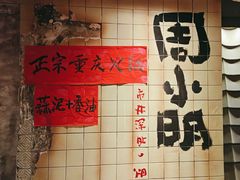 周小明
正宗重庆火锅
蒜泥+香油
市井深处